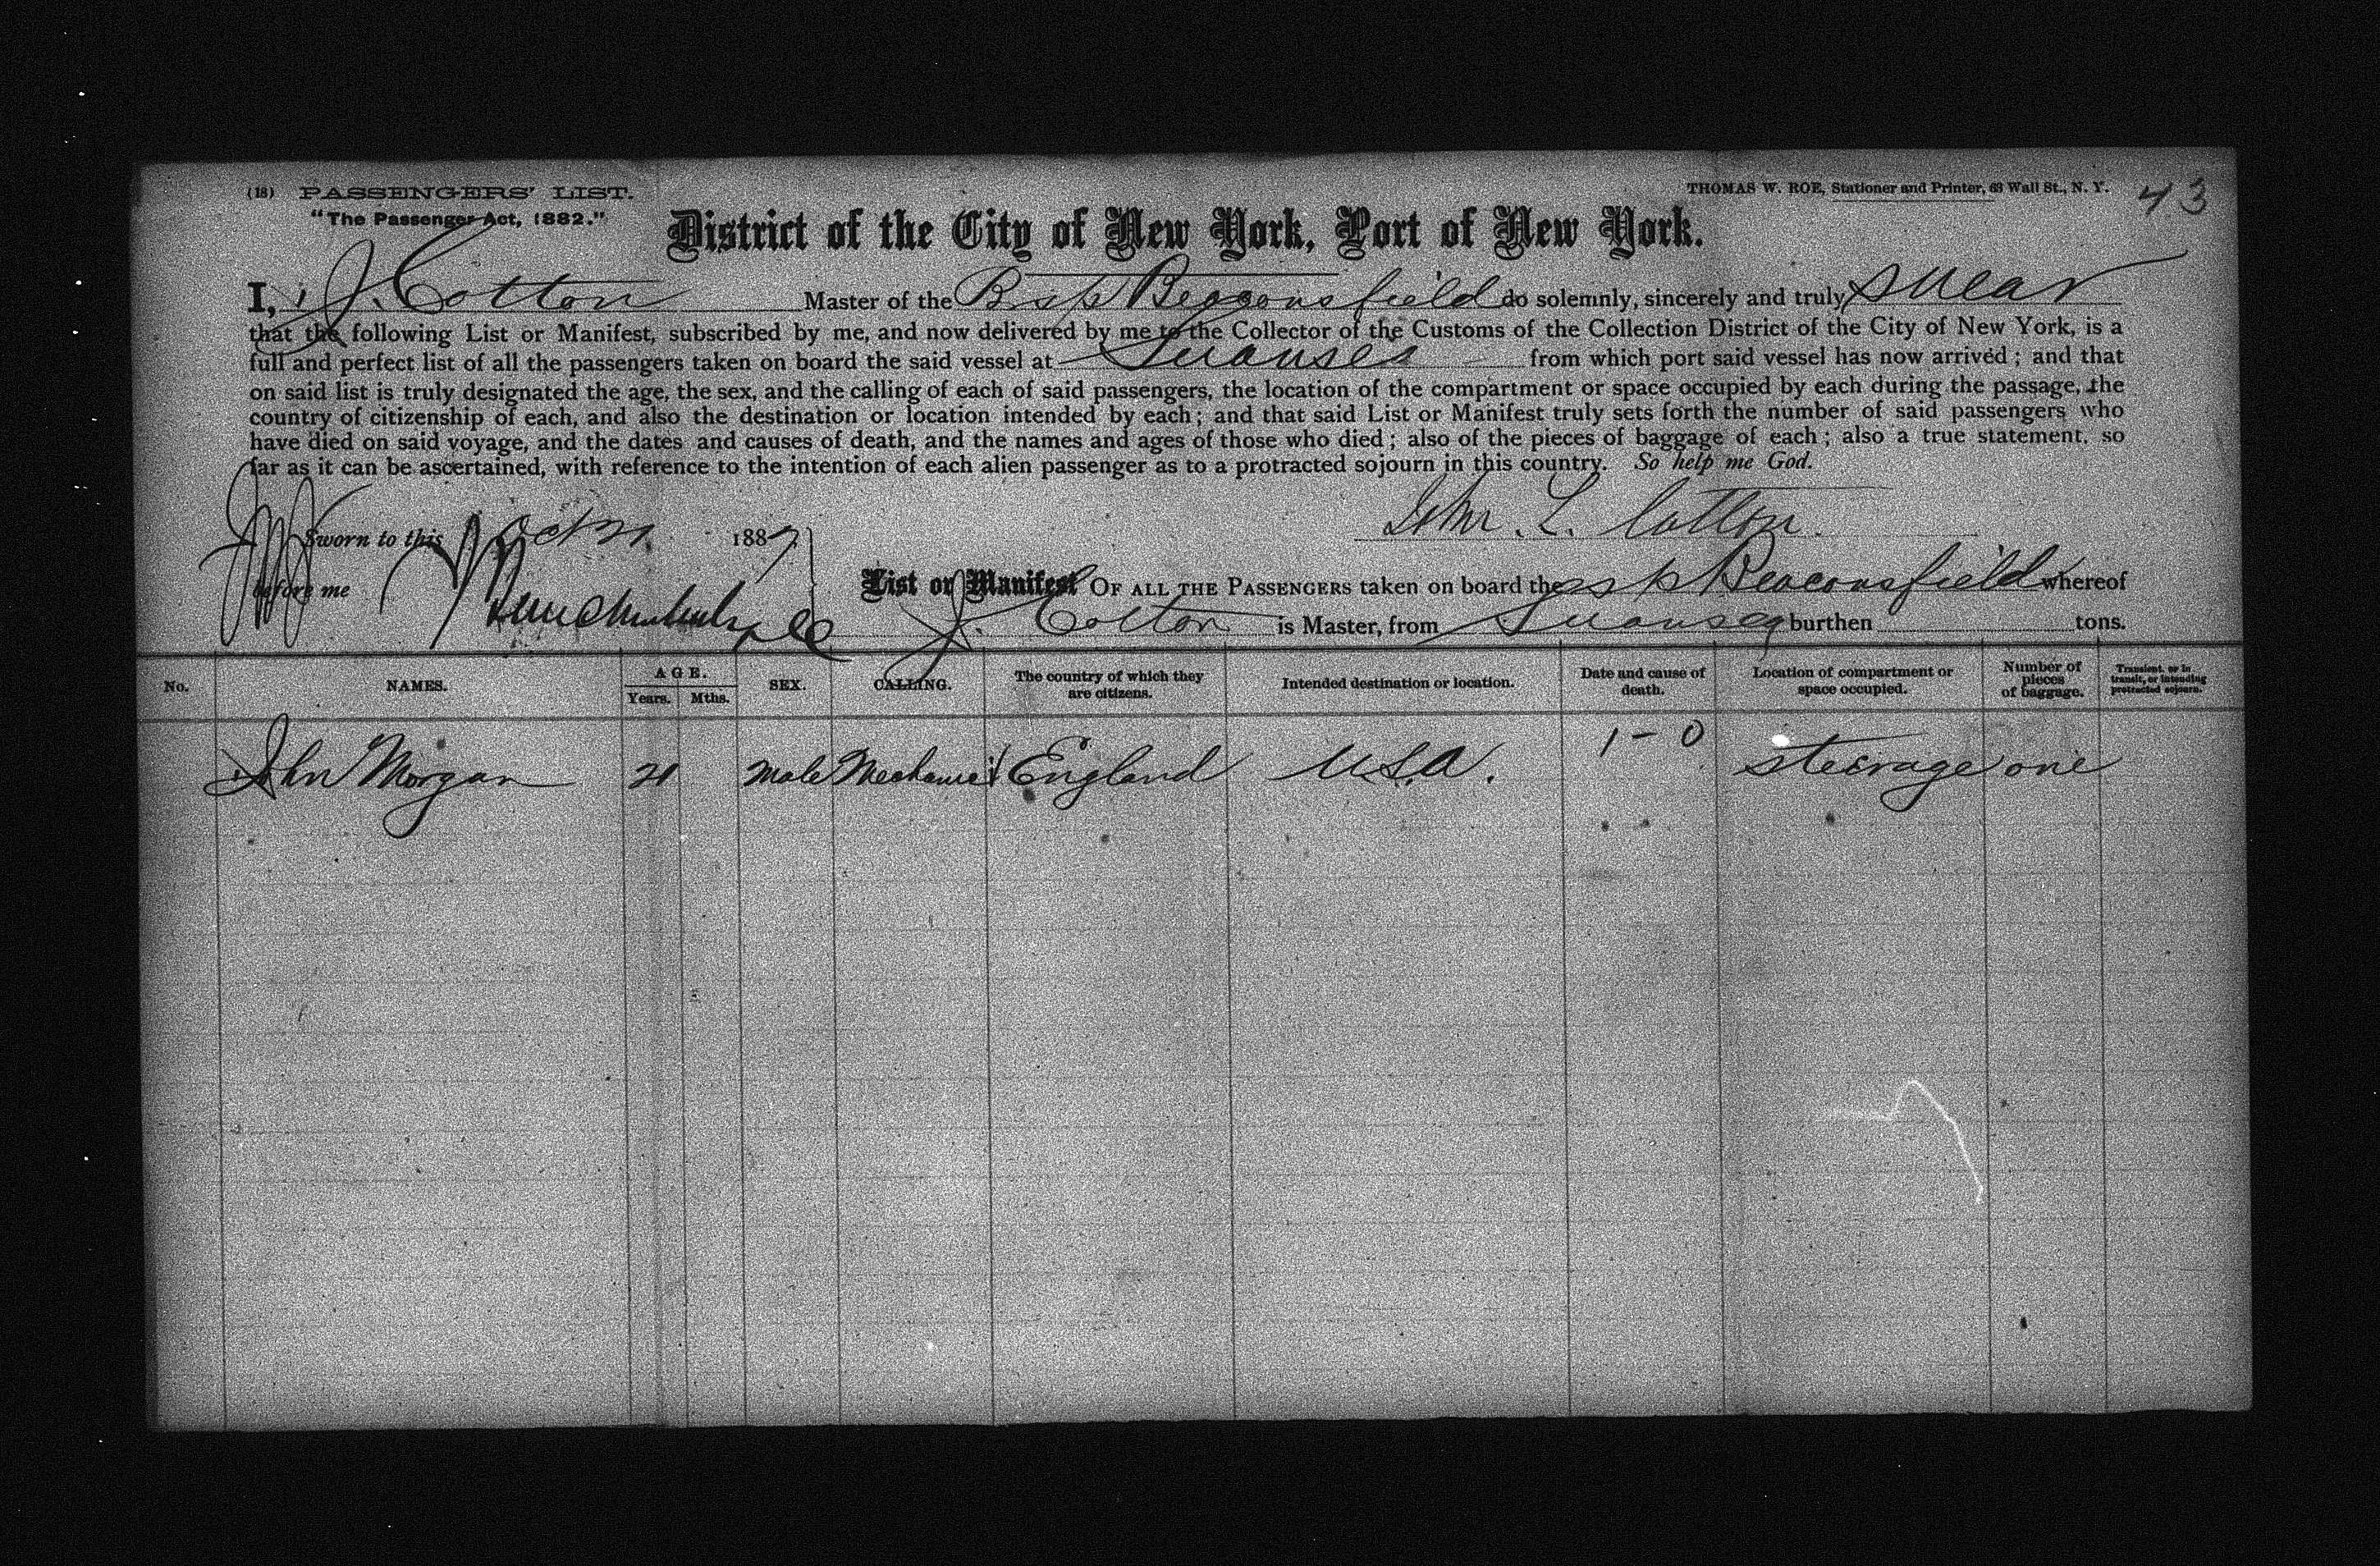 (18) PASSENGERS' LIST. THOMAS W. ROE, Stationer and Printer, 63 Wall St., N. Y. 43
"The Passenger Act, 1882."
District of the City of New York, Port of New York.
I, J. Cotton Master of the Beaconsfield do solemnly, sincerely and truly swear
that the following List or Manifest, subscribed by me, and now delivered by me to the Collector of the Customs of the Collection District of the City of New York, is a
full and perfect list of all the passengers taken on board the said vessel at Swansea from which port said vessel has now arrived; and that
on said list is truly designated the age, the sex, and the calling of each of said passengers, the location of the compartment or space occupied by each during the passage, the
country of citizenship of each, and also the destination or location intended by each; and that said List or Manifest truly sets forth the number of said passengers who
have died on said voyage, and the dates and causes of death, and the names and ages of those who died; also of the pieces of baggage of each; also a true statement, so
far as it can be ascertained, with reference to the intention of each alien passenger as to a protracted sojourn in this country. So help me God.
John. L. Cotton.
Sworn to this Oct 1887
before me
List or Manifest OF ALL THE PASSENGERS taken on board the Beaconsfield whereof
J. Cotton is Master, from Swansea burthen tons.
No. NAMES. AGE. Years. Mths. SEX. CALLING. The country of which they are citizens. Intended destination or location. Date and cause of death. Location of compartment or space occupied. Number of pieces of baggage. Transient, or in transit, or intending protracted sojourn.
1-0
John Morgan 21 Male Mechanic England U.S.A. steerage one